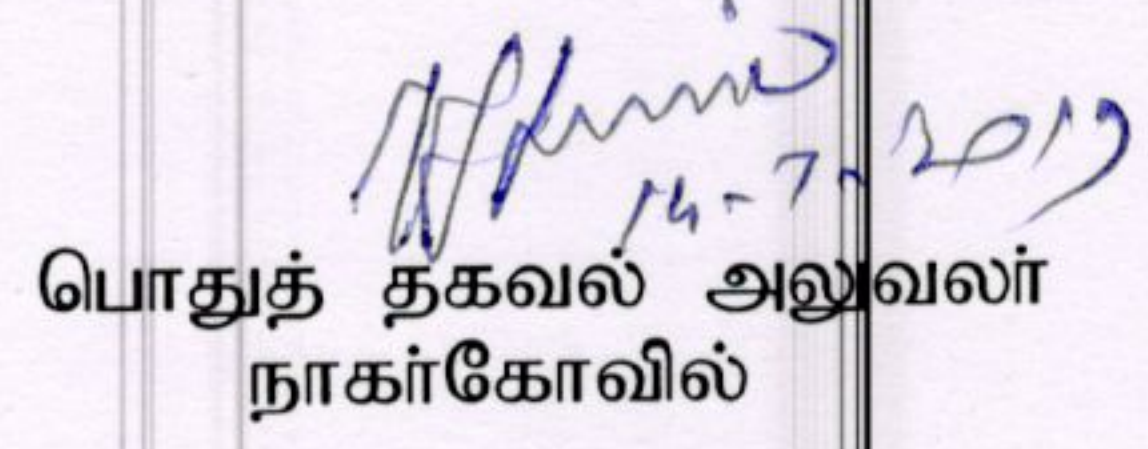 14-7-2019
பொதுத் தகவல் அலுவலர்
நாகர்கோவில்